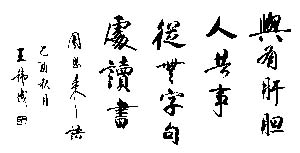 與有肝胆
人共事
從無字句
處讀書
周恩來之語
己酉秋月